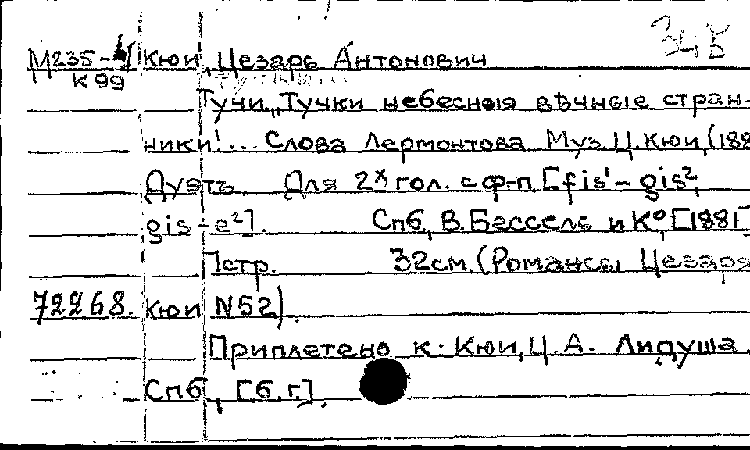 М235- Кюи, Цезарь Антонович 348
К 99
Тучи. "Тучки небесныя вѣчные стран-
ники!... Слова Лермонтова Муз. Ц. Кюи (188
Дуэтъ. Для 2х гол. с ф-п. [fis¹ - gis²,
gis - e²]. Спб., В. Бессель и К° [1881]
7стр. 32см. (Романсы Цезаря
72268. Кюи N52).
Приплетено к: Кюи, Ц. А. Лидуша.
Спб., [б.г.].